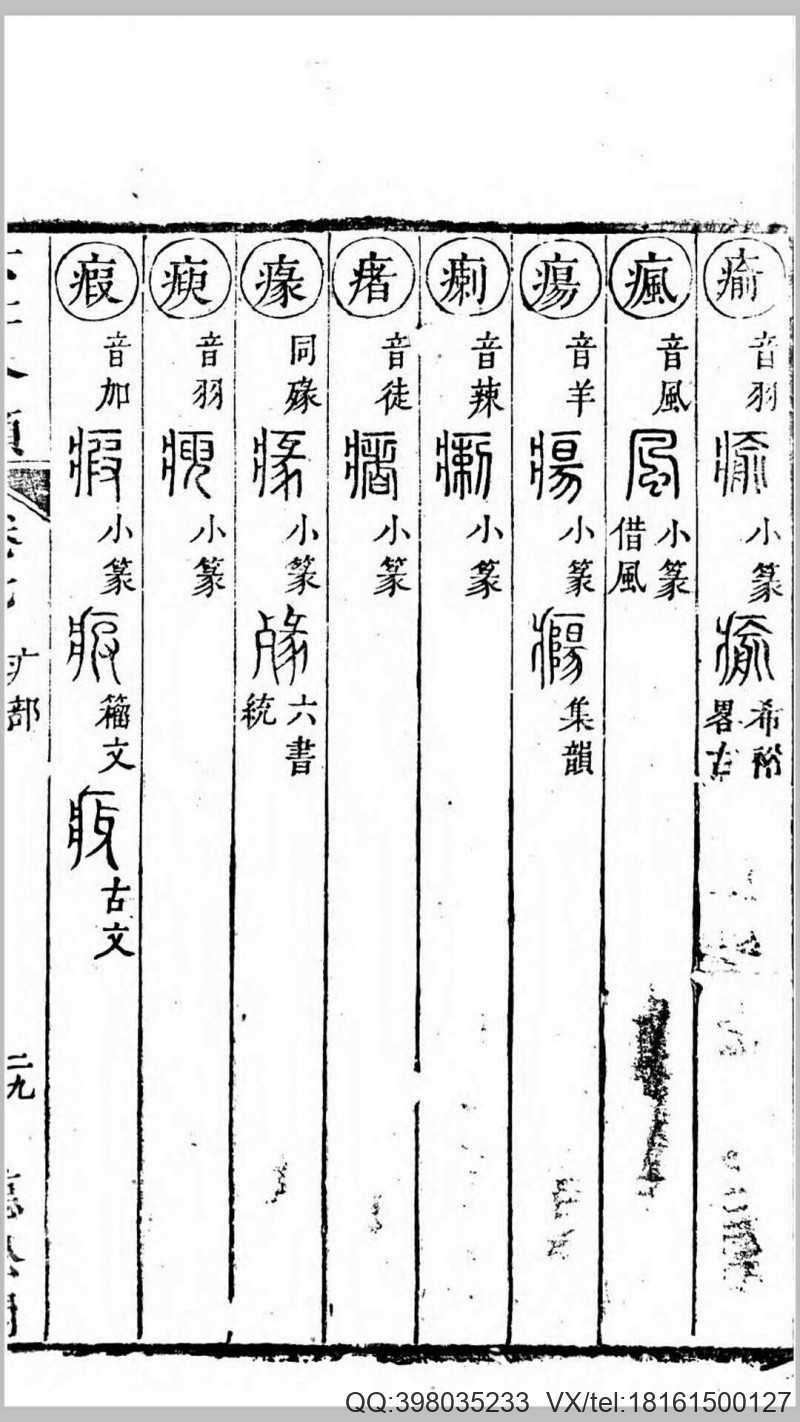 瘉 音羽 小篆 希裕畧古
瘋 音風 小篆借風
瘍 音羊 小篆 集韻
瘌 音辣 小篆
瘏 音徒 小篆
瘃 同瘃 小篆 六書統
瘐 音羽 小篆
瘕 音加 小篆 籀文 古文
疒部
二九
QQ:398035233 VX/tel:18161500127